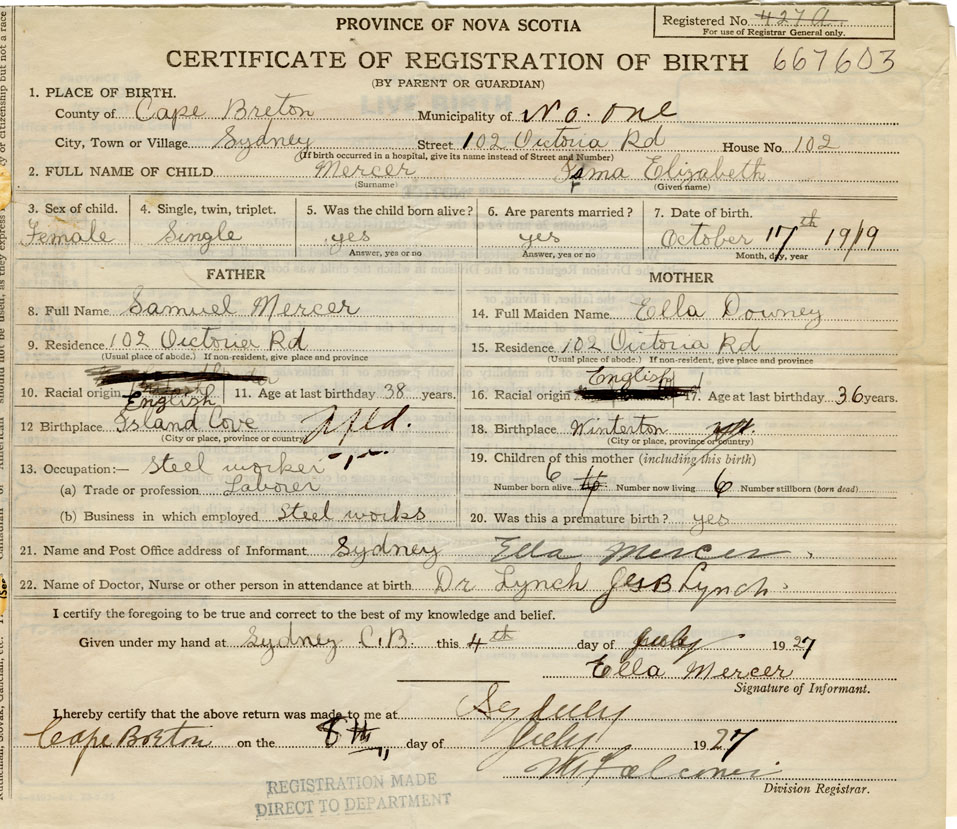 PROVINCE OF NOVA SCOTIA
Registered No. 427A.
For use of Registrar General only.
CERTIFICATE OF REGISTRATION OF BIRTH 667603
(BY PARENT OR GUARDIAN)
1. PLACE OF BIRTH.
County of Cape Breton Municipality of No. one
City, Town or Village Sydney Street 102 Victoria Rd House No. 102
(If birth occurred in a hospital, give its name instead of Street and Number)
2. FULL NAME OF CHILD Mercer Elizabeth
(Surname) (Given name)
3. Sex of child. 4. Single, twin, triplet. 5. Was the child born alive? 6. Are parents married? 7. Date of birth.
Female Single yes yes October 17th 1919
Answer, yes or no Answer, yes or no Month, day, year
FATHER MOTHER
8. Full Name Samuel Mercer 14. Full Maiden Name Ella Downey
9. Residence 102 Victoria Rd 15. Residence 102 Victoria Rd
(Usual place of abode.) If non-resident, give place and province (Usual place of abode.) If non-resident, give place and province
10. Racial origin English 11. Age at last birthday 38 years. 16. Racial origin English 17. Age at last birthday 36 years.
12 Birthplace Island Cove Nfld. 18. Birthplace Winterton
(City or place, province or country) (City or place, province or country)
13. Occupation:— Steel worker 19. Children of this mother (including this birth)
(a) Trade or profession Laborer Number born alive 6 Number now living 6 Number stillborn (born dead)
(b) Business in which employed Steel works 20. Was this a premature birth? yes
21. Name and Post Office address of Informant Sydney Ella Mercer
22. Name of Doctor, Nurse or other person in attendance at birth Dr Lynch Lynch
I certify the foregoing to be true and correct to the best of my knowledge and belief.
Given under my hand at Sydney C.B. this 4th day of July 1927
Ella Mercer
Signature of Informant.
I hereby certify that the above return was made to me at Sydney
Cape Breton on the 8th day of July 1927
Division Registrar.
REGISTRATION MADE
DIRECT TO DEPARTMENT